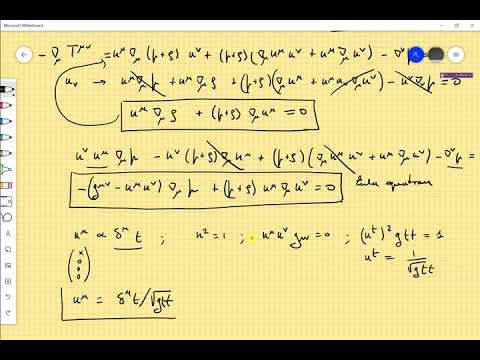 Microsoft Whiteboard
- ∇_μ T^{μν} = u^μ ∇_μ (p+ρ) u^ν + (p+ρ)(∇_μ u^μ u^ν + u^μ ∇_μ u^ν) - ∇^ν p =
u_ν → u^μ ∇_μ p + u^μ ∇_μ ρ + (p+ρ)(∇_μ u^μ + u^μ u_ν ∇_μ u^ν) - u^ν ∇_ν p = 0
u^μ ∇_μ ρ + (p+ρ) ∇_μ u^μ = 0
u^ν u^μ ∇_μ p - u^ν (p+ρ) ∇_μ u^μ + (p+ρ) (∇_μ u^μ u^ν + u^μ ∇_μ u^ν) - ∇^ν p =
-(g^{μν} - u^μ u^ν) ∇_μ p + (p+ρ) u^μ ∇_μ u^ν = 0 Euler equations
u^μ ∝ δ^μ t ; u² = 1 ; u^μ u^ν g_{μν} = 0 ; (u^t)² gtt = 1
(x 0 0 0) u^t = 1/√gtt
u^μ = δ^μ t / √gtt